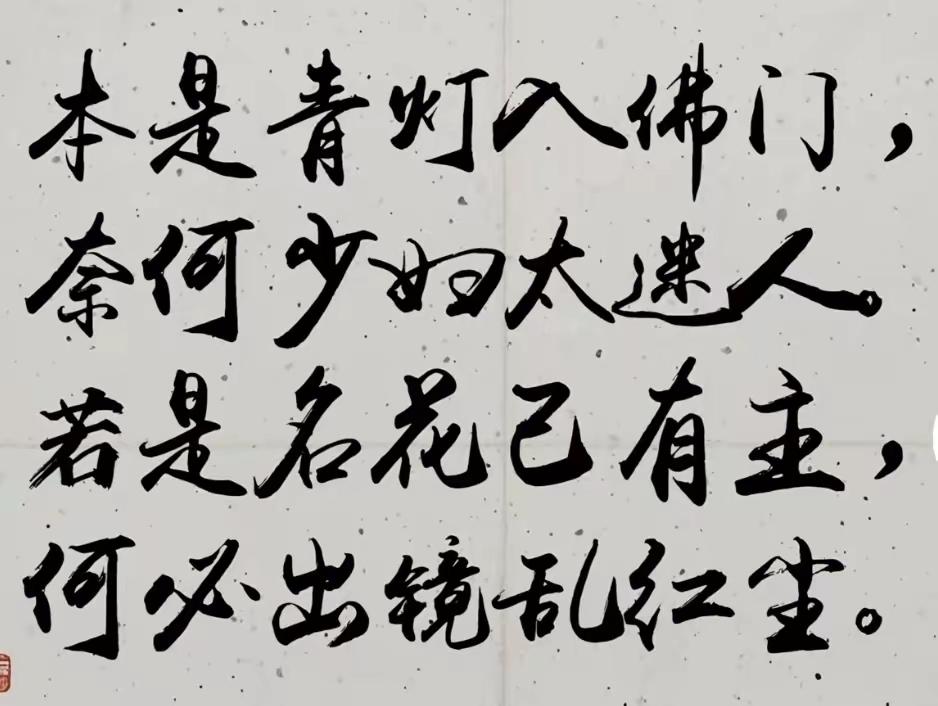 本是青灯入佛门，
奈何少妇太迷人。
若是名花已有主，
何必出镜乱红尘。